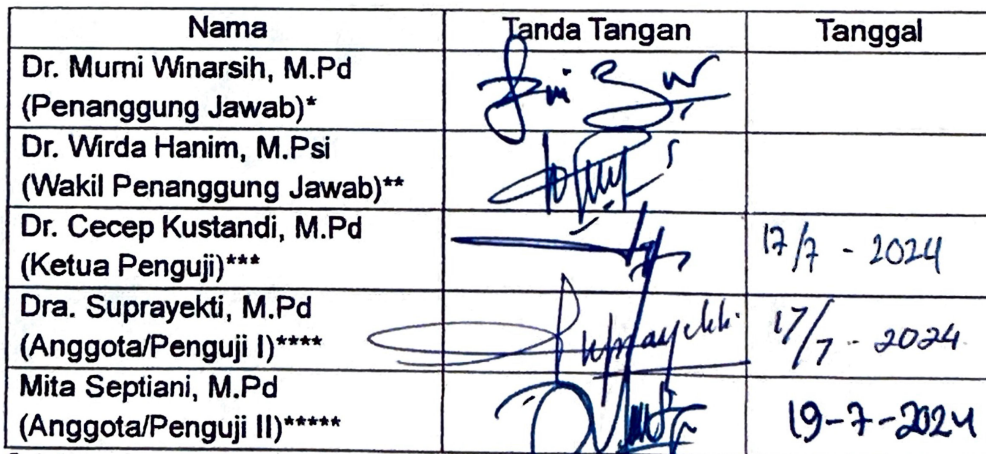 Nama Tanda Tangan Tanggal
Dr. Murni Winarsih, M.Pd
(Penanggung Jawab)*
Dr. Wirda Hanim, M.Psi
(Wakil Penanggung Jawab)**
Dr. Cecep Kustandi, M.Pd
(Ketua Penguji)*** 17/7 - 2024
Dra. Suprayekti, M.Pd
(Anggota/Penguji I)**** Suprayekti 17/7 - 2024
Mita Septiani, M.Pd
(Anggota/Penguji II)***** 19-7-2024